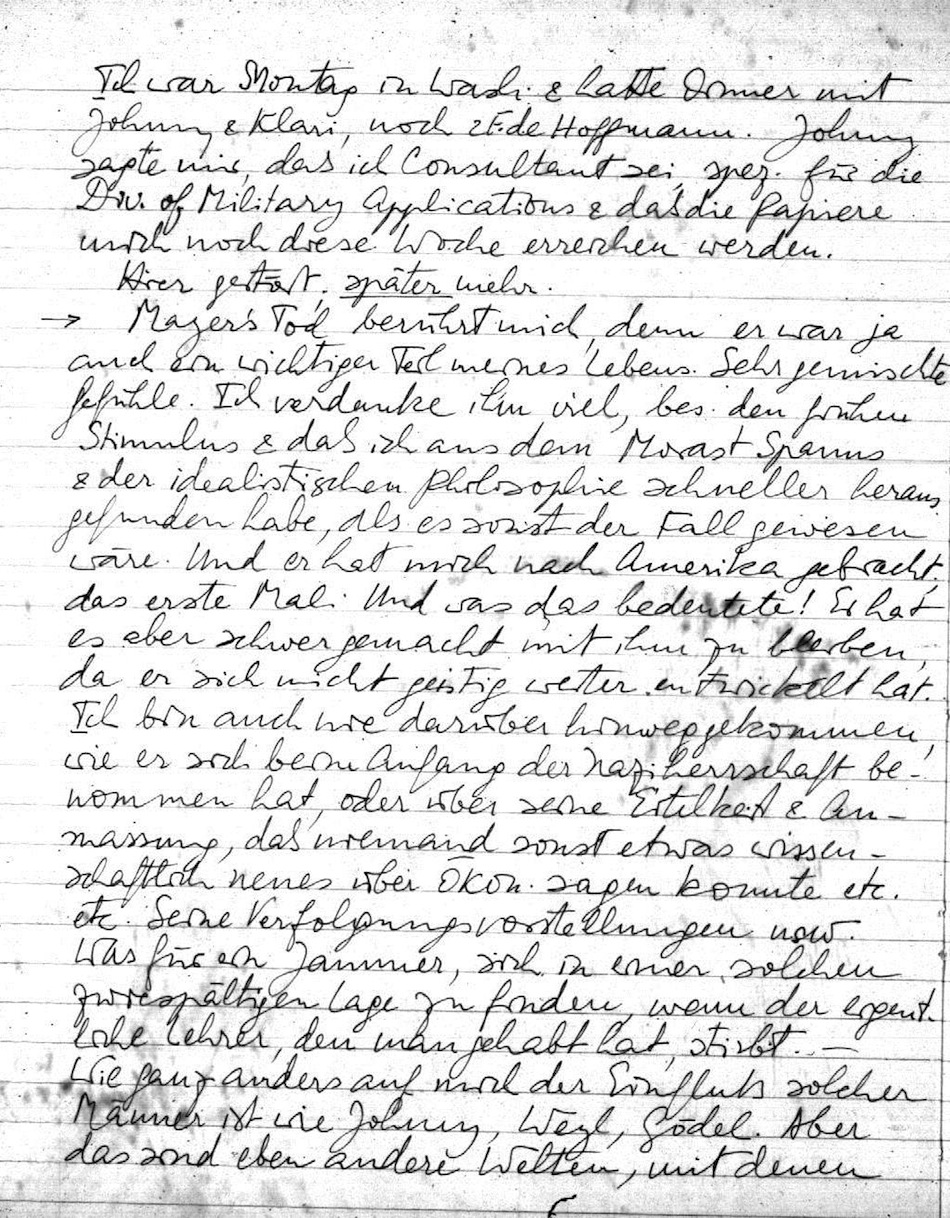 Ich war Montag in Wash. & hatte Dinner mit
Johnny & Klari, noch Fr. de Hoffmann. Johnny
sagte mir, dass ich Consultant sei, spez. für die
Div. of Military Applications & dass die Papiere
mich noch diese Woche erreichen werden.
Hier gestört, später mehr.
→ Mayer's Tod berührt mich, denn er war ja
auch ein wichtiger Teil meines Lebens. Sehr gemischte
Gefühle. Ich verdanke ihm viel, bes. den frühen
Stimulus & dass ich aus dem Morast Spanns
& der idealistischen Philosophie schneller heraus
gefunden habe, als es sonst der Fall gewesen
wäre. Und er hat mich nach Amerika gebracht,
das erste Mal. Und was das bedeutete! Er hat
es aber schwer gemacht mit ihm zu bleiben,
da er sich nicht geistig weiter entwickelt hat.
Ich bin auch nie darüber hinweggekommen,
wie er sich beim Anfang der Naziherrschaft be-
nommen hat, oder über seine Eitelkeit & An-
massung, dass niemand sonst etwas wissen-
schaftlich neues über Ökon. sagen konnte etc.
etc. Seine Verfolgungsvorstellungen usw.
Was für ein Jammer, sich in einer solchen
zwiespältigen Lage zu finden, wenn der eigent-
liche Lehrer, den man gehabt hat, stirbt. —
Wie ganz anders auf mich der Einfluss solcher
Männer ist wie Johnny, Weyl, Gödel. Aber
das sind eben andere Welten, mit denen